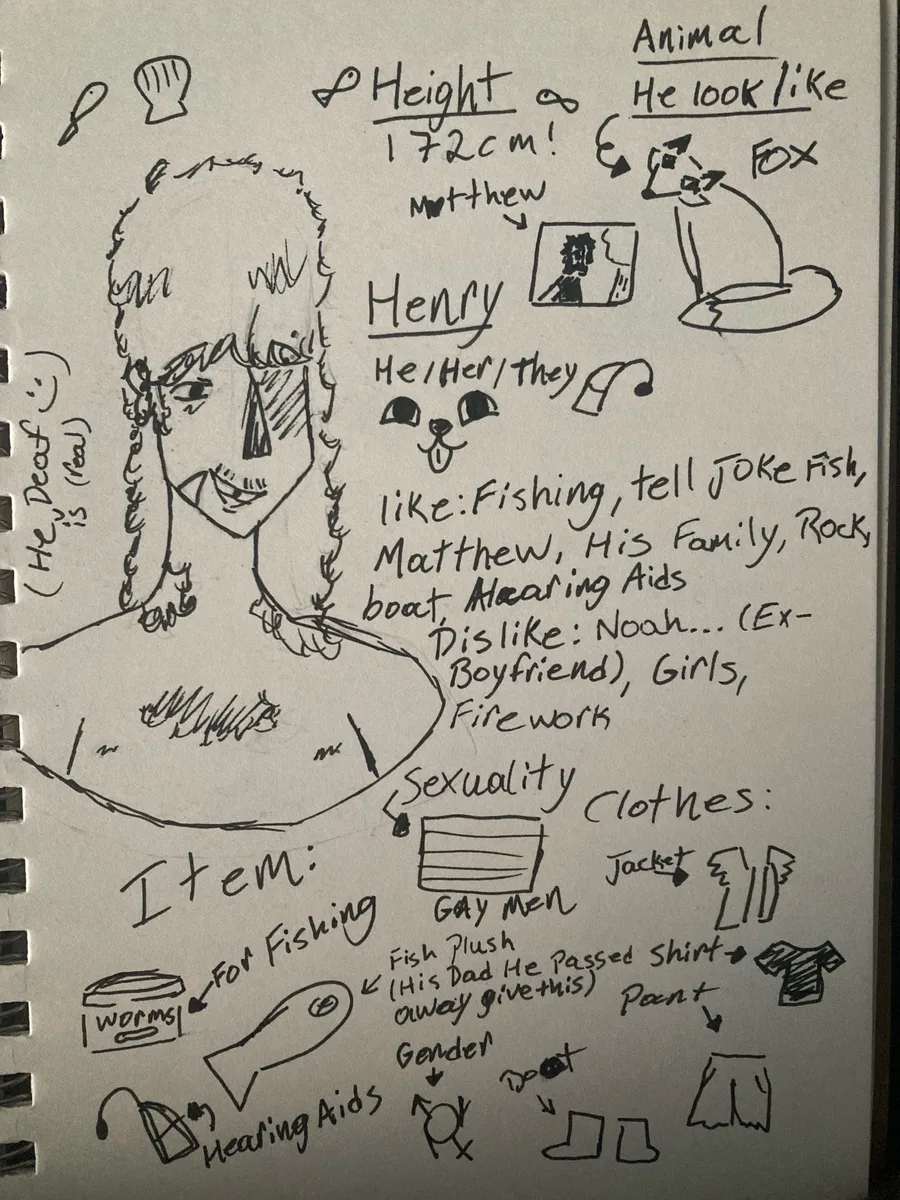 Animal
He look like
Fox
Height
172cm!
Matthew
Henry
He/Her/they
(He Deaf :))
is (real)
like: Fishing, tell Joke Fish,
Matthew, His Family, Rock,
boat, Hearing Aids
Dislike: Noah... (Ex-
Boyfriend), Girls,
Firework
Sexuality
GAY MEN
Clothes:
Jacket
Shirt
Pant
Item:
For Fishing
worms
Fish Plush
(His Dad He Passed
away give this)
Gender
Hearing Aids